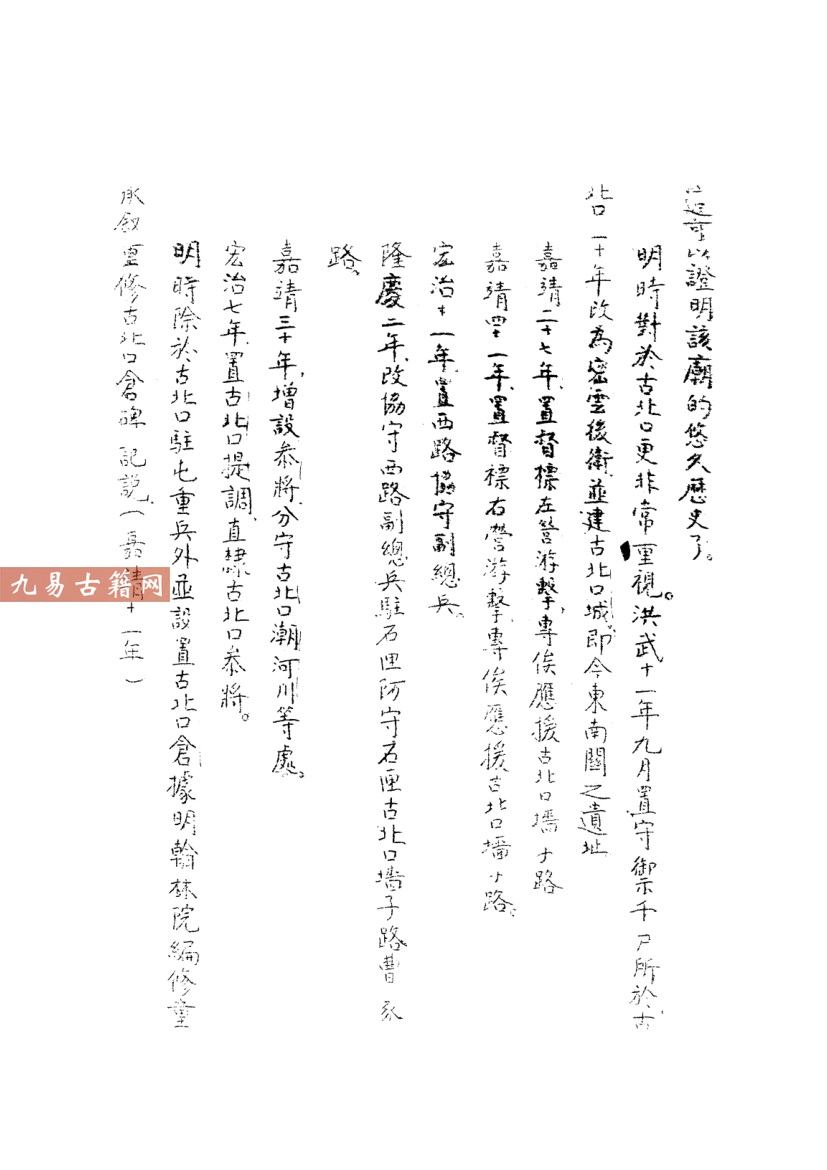 這可以證明該廟的悠久歷史了。
明時對於古北口更非常重視。洪武十一年九月置守御示千戶所於古
北口一十年改為密雲後衛並建古北口城,即今東南關之遺址
嘉靖二十七年,置督標左營游擊,專俟應援古北口墻子路
嘉靖四十一年,置督標右營游擊,專俟應援古北口墻子路。
宏治十一年,置西路協守副總兵。
隆慶二年,改協守西路副總兵駐石匣防守石匣古北口墻子路曹家
路。
嘉靖三十年,增設叅將,分守古北口潮河川等處。
宏治七年,置古北口提調,直隸古北口叅將。
明時除於古北口駐屯重兵外並設置古北口倉據明翰林院編修童
承敘重修古北口倉碑記說,(嘉靖十一年)
九易古籍网